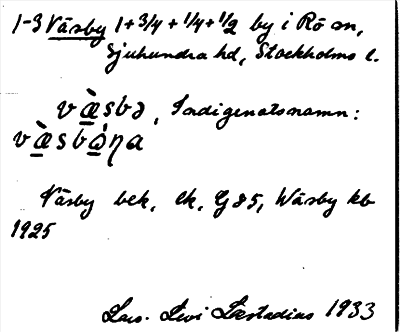 1-3 Väsby 1+3/4+1/4+1/2 by i Rö sn,
Sjuhundra hd, Stockholms l.
væ̀sbə, Indigenatsnamn:
væ̀sbòŋa
Väsby bek, ek, G 85, Wäsby kb
1925
Lars Levi Læstadius 1933